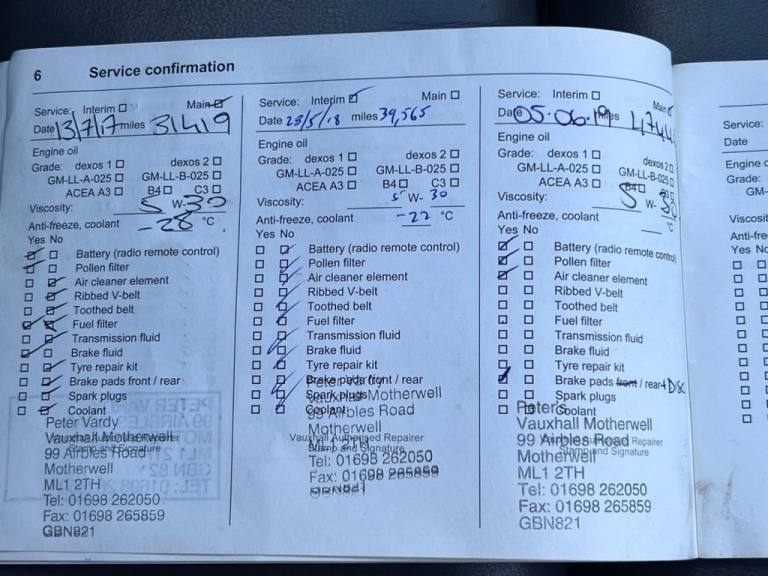 6 Service confirmation
Service: Interim Main
Date 13/7/17 miles 31419
Engine oil
Grade: dexos 1 dexos 2
GM-LL-A-025 GM-LL-B-025
ACEA A3 B4 C3
Viscosity: 5 W-30
Anti-freeze, coolant -28 °C
Yes No
Battery (radio remote control)
Pollen filter
Air cleaner element
Ribbed V-belt
Toothed belt
Fuel filter
Transmission fluid
Brake fluid
Tyre repair kit
Brake pads front / rear
Spark plugs
Coolant
Peter Vardy
Vauxhall Motherwell
99 Airbles Road
Stamp and Signature
Motherwell
ML1 2TH
Tel: 01698 262050
Fax: 01698 265859
GBN821
Service: Interim Main
Date 23/5/18 miles 39,565
Engine oil
Grade: dexos 1 dexos 2
GM-LL-A-025 GM-LL-B-025
ACEA A3 B4 C3
Viscosity: 5 W- 30
Anti-freeze, coolant -22 °C
Yes No
Battery (radio remote control)
Pollen filter
Air cleaner element
Ribbed V-belt
Toothed belt
Fuel filter
Transmission fluid
Brake fluid
Tyre repair kit
Brake pads front / rear
Spark plugs
Coolant
Vauxhall Motherwell
99 Airbles Road
Motherwell
Vauxhall Authorised Repairer
Stamp and Signature
Tel: 01698 262050
Fax: 01698 265859
GBN821
Service: Interim Main
Date 05.06.19 miles
Engine oil
Grade: dexos 1 dexos 2
GM-LL-A-025 GM-LL-B-025
ACEA A3 B4
Viscosity: 5 W- 30
Anti-freeze, coolant °C
Yes No
Battery (radio remote control)
Pollen filter
Air cleaner element
Ribbed V-belt
Toothed belt
Fuel filter
Transmission fluid
Brake fluid
Tyre repair kit
Brake pads front / rear + Disc
Spark plugs
Coolant
Vauxhall Motherwell
99 Airbles Road
Repairer
Stamp and Signature
Motherwell
ML1 2TH
Tel: 01698 262050
Fax: 01698 265859
GBN821
Service:
Date
Engine
Grade:
GM-
Yes